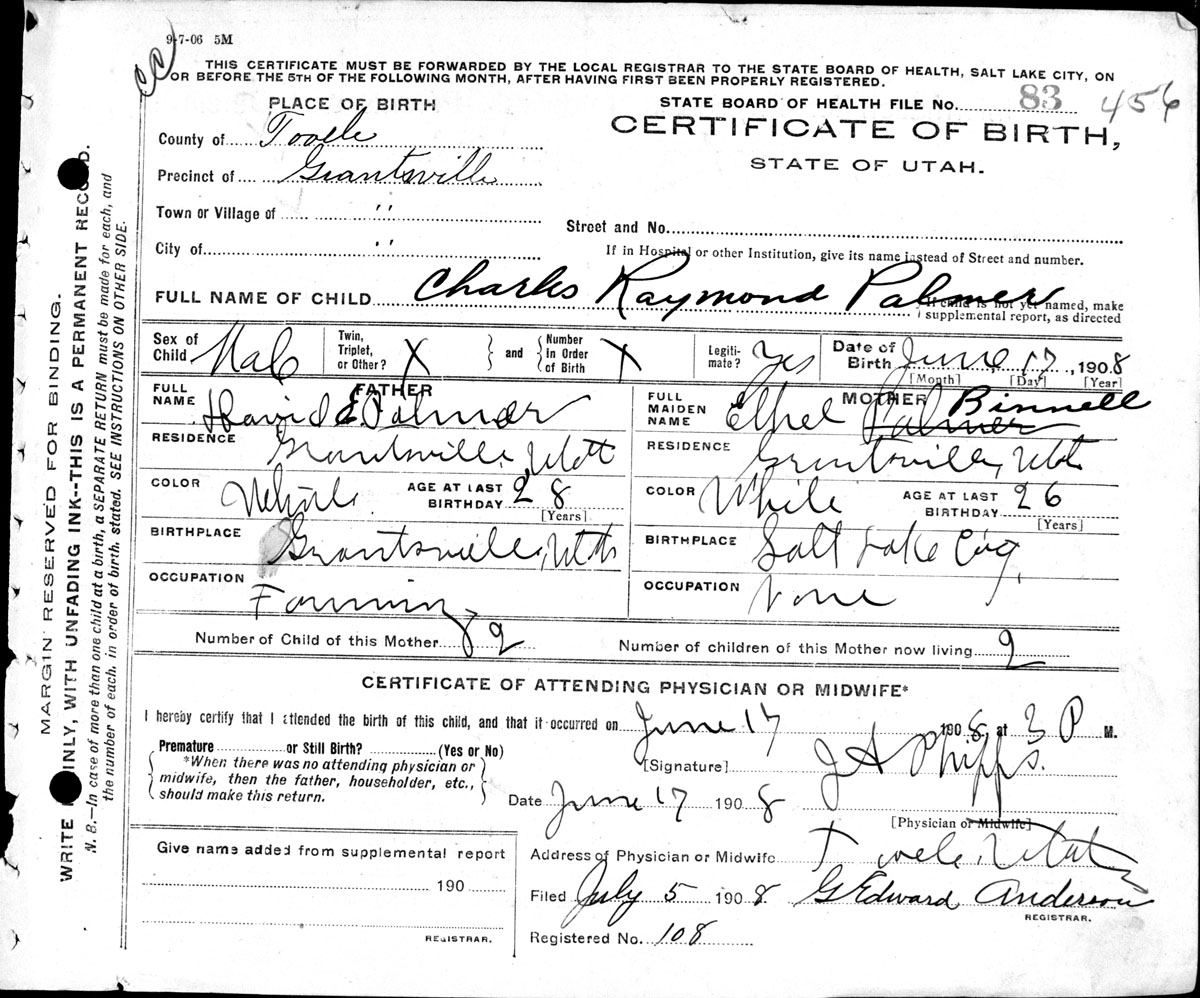 9-7-06 5M
THIS CERTIFICATE MUST BE FORWARDED BY THE LOCAL REGISTRAR TO THE STATE BOARD OF HEALTH, SALT LAKE CITY, ON
OR BEFORE THE 5TH OF THE FOLLOWING MONTH, AFTER HAVING FIRST BEEN PROPERLY REGISTERED.
PLACE OF BIRTH
STATE BOARD OF HEALTH FILE No. 83 456
County of Tooele
CERTIFICATE OF BIRTH,
Precinct of Grantsville
STATE OF UTAH.
Town or Village of "
Street and No.
City of "
If in Hospital or other Institution, give its name instead of Street and number.
FULL NAME OF CHILD Charles Raymond Palmer
If child is not yet named, make
supplemental report, as directed
Sex of Child Male Twin, Triplet, or Other? X and Number In Order of Birth X Legiti-mate? Yes Date of Birth June 17, 1908
[Month] [Day] [Year]
FATHER
FULL NAME David E Palmer
RESIDENCE Grantsville, Utah
COLOR White AGE AT LAST BIRTHDAY 28
[Years]
BIRTHPLACE Grantsville, Utah
OCCUPATION Farming
MOTHER
FULL MAIDEN NAME Ethel Palmer Binnell
RESIDENCE Grantsville, Utah
COLOR White AGE AT LAST BIRTHDAY 26
[Years]
BIRTHPLACE Salt Lake City,
OCCUPATION None
Number of Child of this Mother 2 Number of children of this Mother now living 2
CERTIFICATE OF ATTENDING PHYSICIAN OR MIDWIFE*
I hereby certify that I attended the birth of this child, and that it occurred on June 17 1908 at 3 P M.
Premature or Still Birth? (Yes or No)
*When there was no attending physician or
midwife, then the father, householder, etc.,
should make this return.
[Signature] J A Phipps.
Date June 17 1908
[Physician or Midwife]
Give name added from supplemental report
190
REGISTRAR.
Address of Physician or Midwife Tooele, Utah
Filed July 5 1908 G Edward Anderson
REGISTRAR.
Registered No. 108
MARGIN RESERVED FOR BINDING.
WRITE INLY, WITH UNFADING INK--THIS IS A PERMANENT RECORD.
N. B.—In case of more than one child at a birth, a SEPARATE RETURN must be made for each, and
the number of each, in order of birth, stated. SEE INSTRUCTIONS ON OTHER SIDE.